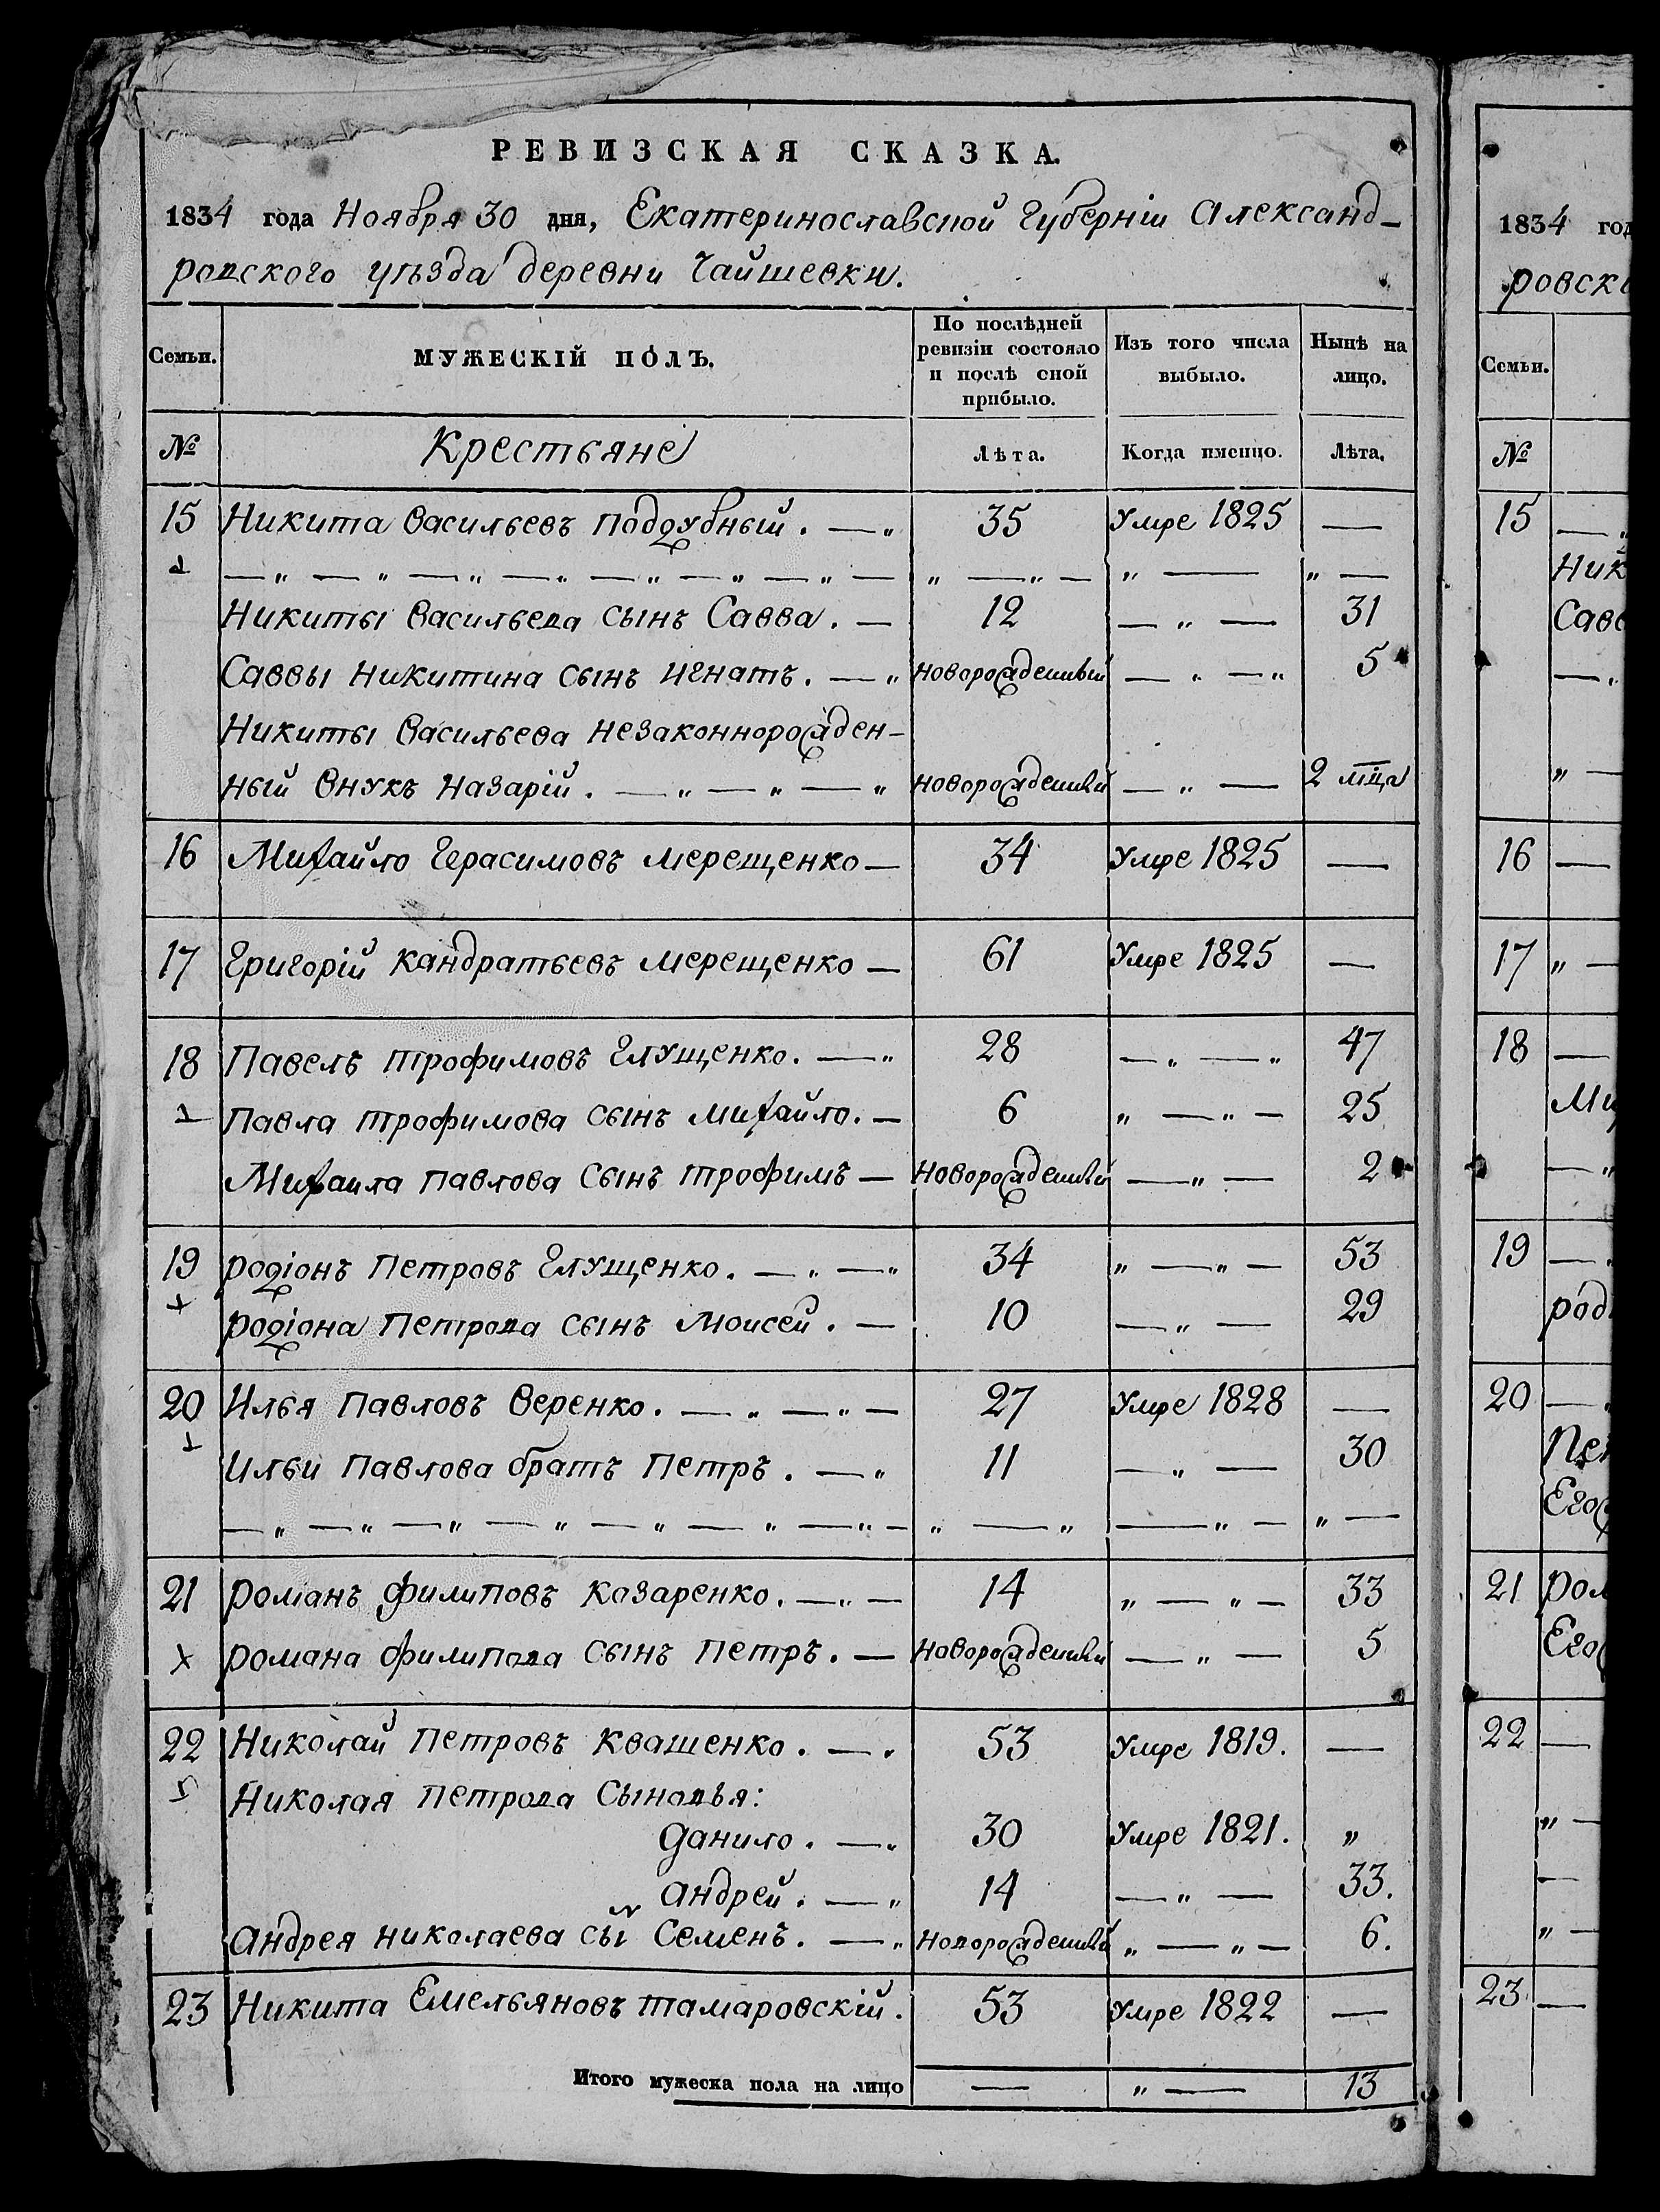 РЕВИЗСКАЯ СКАЗКА.
1834 года Ноября 30 дня, Екатеринославской Губерніи Александ-
ровского уѣзда деревни Чайшевки.
Семьи. МУЖЕСКІЙ ПОЛЪ. По послѣдней ревизіи состояло и послѣ оной прибыло. Изъ того числа выбыло. Нынѣ на лицо.
№ Крестьяне Лѣта. Когда именно. Лѣта.
15 Никита Васильевъ Поддубный. — „ 35 Умре 1825 —
— „ — „ — „ — „ — „ — „ — „ — „ — „ — „ — „ —
Никиты Васильева сынъ Савва. — 12 — „ — 31
Саввы Никитина сынъ Игнатъ. — „ новорожденный — „ — „ 5
Никиты Васильева незаконнорожден-
ный внукъ Назарій. — „ — „ — „ новорожденный — „ — 2 мца
16 Михайло Герасимовъ Мерещенко — 34 Умре 1825 —
17 Григорій Кандратьевъ Мерещенко — 61 Умре 1825 —
18 Павелъ Трофимовъ Глущенко. — „ 28 — „ — „ 47
Павла Трофимова сынъ Михайло. — 6 „ — „ — 25
Михаила Павлова сынъ Трофимъ — новорожденный — „ — 2
19 Родіонъ Петровъ Глущенко. — „ — „ 34 „ — „ — 53
Родіона Петрова сынъ Моисей. — 10 — „ — 29
20 Илья Павловъ Веренко. — „ — „ — 27 Умре 1828 —
Ильи Павлова братъ Петръ. — „ 11 — „ — 30
— „ — „ — „ — „ — „ — „ — „ — „ — „ — „ — „ —
21 Романъ Филиповъ Козаренко. — „ — 14 „ — „ — 33
х Романа Филипова сынъ Петръ. — новорожденный — „ — 5
22 Николай Петровъ Квашенко. — „ 53 Умре 1819. —
Николая Петрова сыновья:
Данило. — „ 30 Умре 1821. „
Андрей. — „ 14 — „ — 33.
Андрея Николаева сы Семенъ. — „ новорожденный „ — „ — 6.
23 Никита Емельяновъ Тамаровскій. 53 Умре 1822 —
Итого мужеска пола на лицо — „ — 13
1834 год
ровск
Семьи.
№
15 —
Ник
Савв
16 —
17 „ —
18 —
Ми
19 —
род
20 —
Пе
Его
21 Ром
Его
22 —
23 —